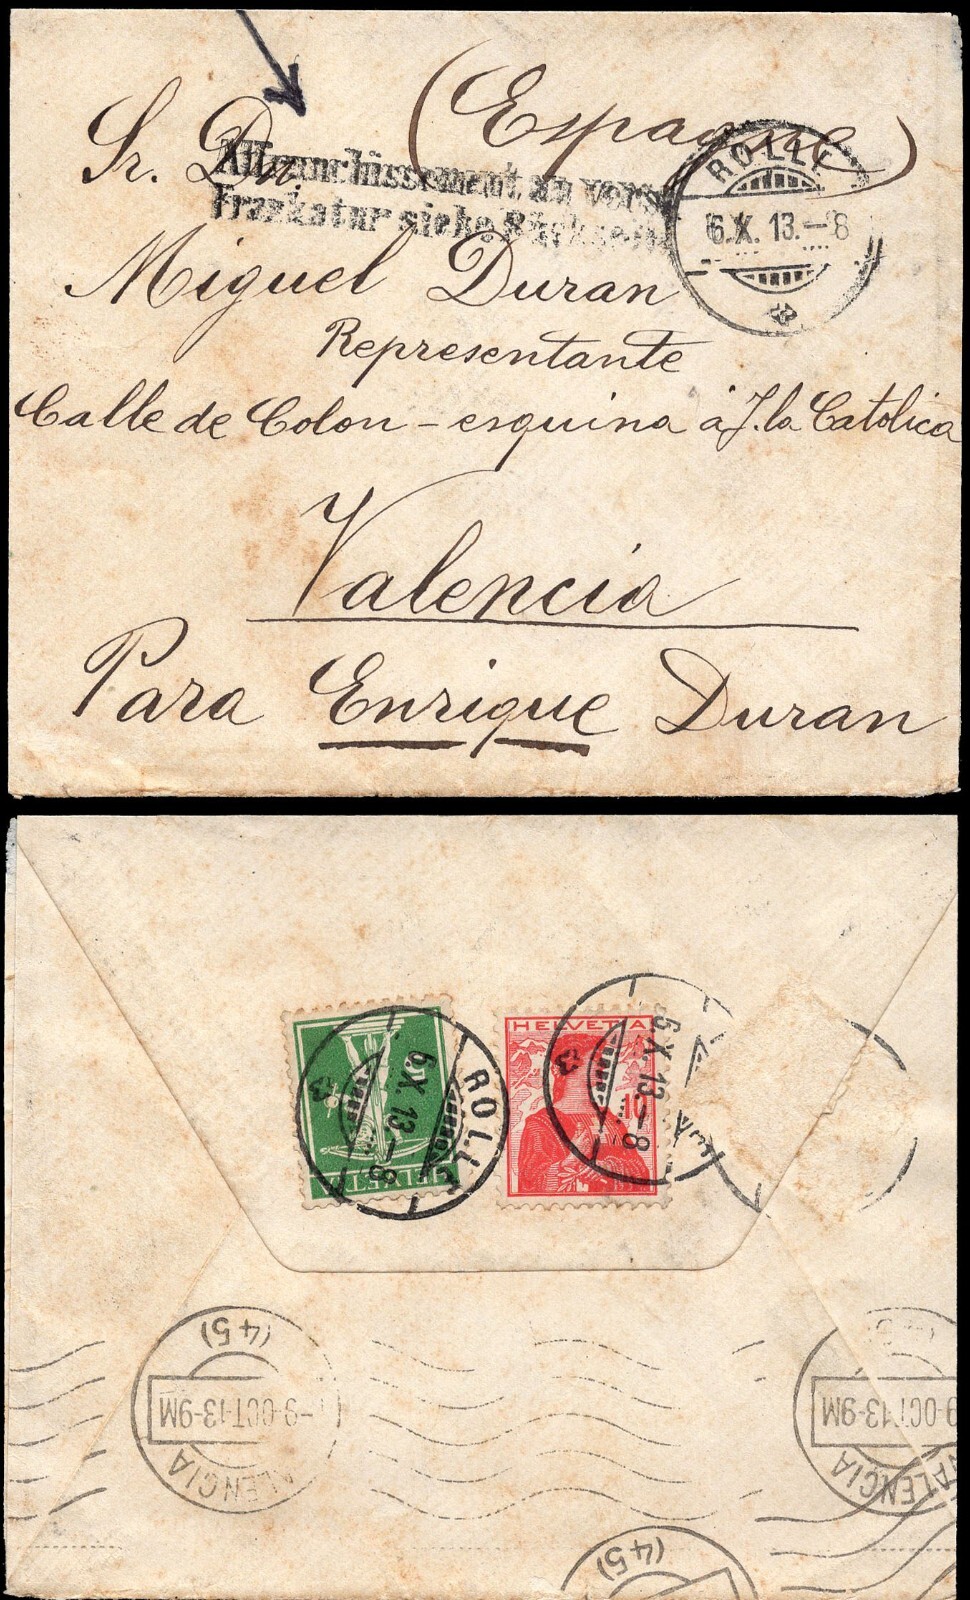 (Espagne)
Sr. Dn.
Affranchissement au verso
Frankatur siehe Rückseite
ROLLE
6.X.13.–8
Miguel Duran
Representante
Calle de Colon – esquina á J. la Catolica
Valencia
Para Enrique Duran
HELVETIA
10
ROLLE
6.X.13.–8
6.X.13.–8
(45)
–9.OCT.13-9M
VALENCIA
(45)
9.OCT.13-9M
VALENCIA
(45)